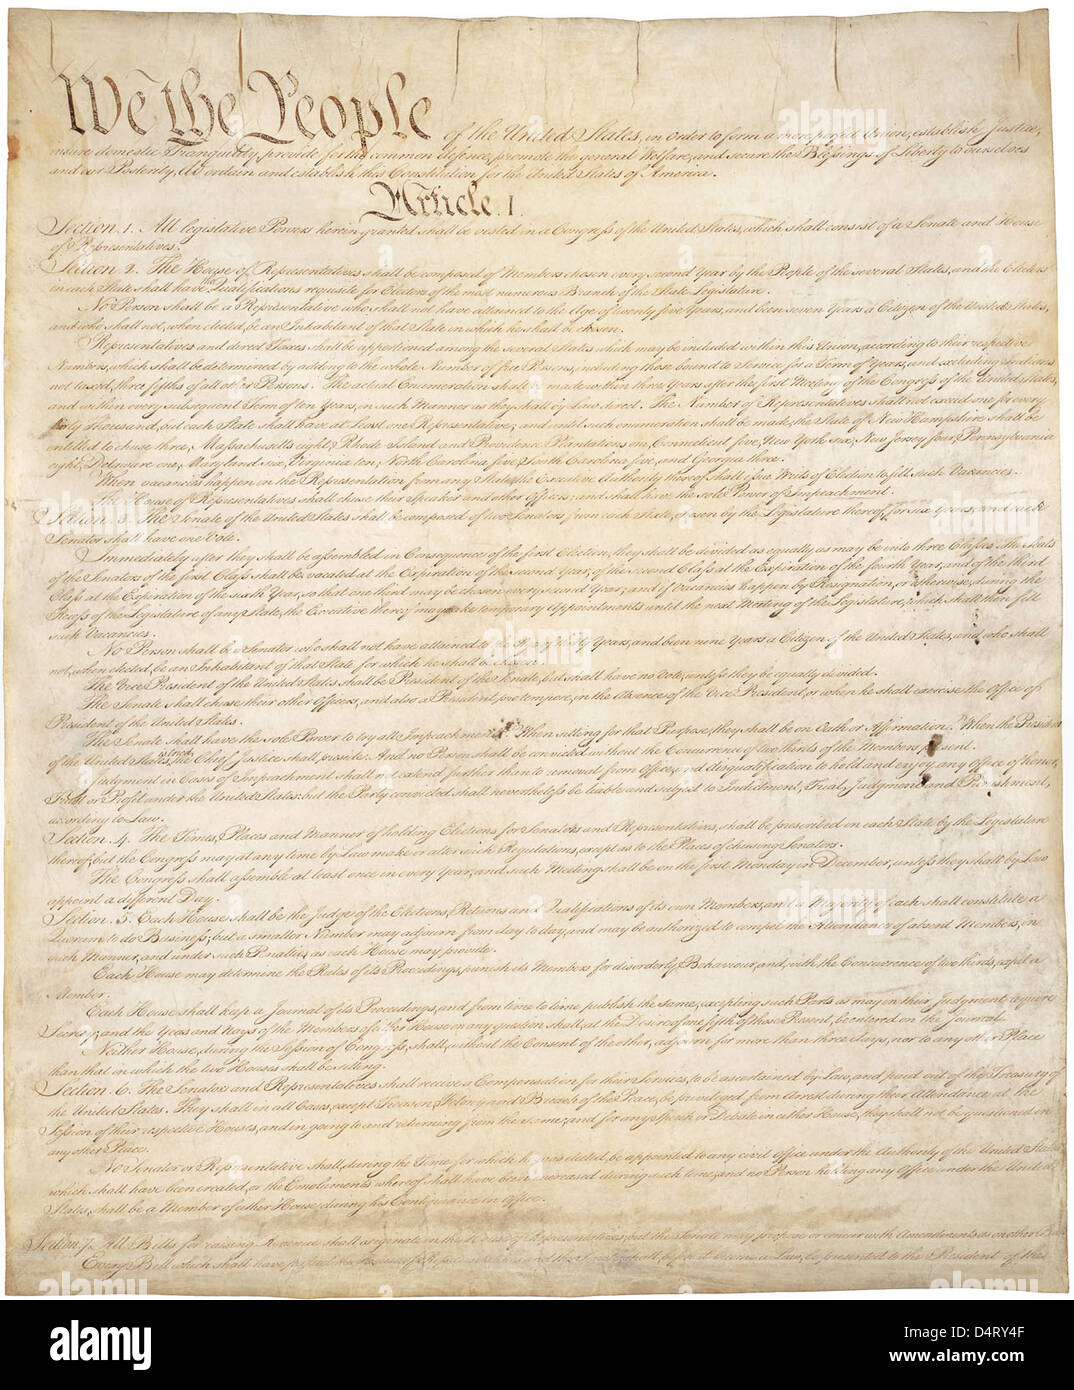 We the People of the United States, in order to form a more perfect Union, establish Justice,
insure domestic Tranquility, provide for the common defence, promote the general Welfare, and secure the Blessings of Liberty to ourselves
and our Posterity, do ordain and establish this Constitution for the United States of America.
Article. I.
Section. 1. All legislative Powers herein granted shall be vested in a Congress of the United States, which shall consist of a Senate and House
of Representatives.
Section. 2. The House of Representatives shall be composed of Members chosen every second Year by the People of the several States, and the Electors
in each State shall have the Qualifications requisite for Electors of the most numerous Branch of the State Legislature.
No Person shall be a Representative who shall not have attained to the Age of twenty five Years, and been seven Years a Citizen of the United States,
and who shall not, when elected, be an Inhabitant of that State in which he shall be chosen.
Representatives and direct Taxes shall be apportioned among the several States which may be included within this Union, according to their respective
Numbers, which shall be determined by adding to the whole Number of free Persons, including those bound to Service for a Term of Years, and excluding Indians
not taxed, three fifths of all other Persons. The actual Enumeration shall be made within three Years after the first Meeting of the Congress of the United States,
and within every subsequent Term of ten Years, in such Manner as they shall by Law direct. The Number of Representatives shall not exceed one for every
thirty Thousand, but each State shall have at Least one Representative; and until such enumeration shall be made, the State of New Hampshire shall be
entitled to chuse three, Massachusetts eight, Rhode Island and Providence Plantations one, Connecticut five, New York six, New Jersey four, Pennsylvania
eight, Delaware one, Maryland six, Virginia ten, North Carolina five, South Carolina five, and Georgia three.
When vacancies happen in the Representation from any State, the Executive Authority thereof shall issue Writs of Election to fill such Vacancies.
The House of Representatives shall chuse their Speaker and other Officers; and shall have the sole Power of Impeachment.
Section. 3. The Senate of the United States shall be composed of two Senators from each State, chosen by the Legislature thereof, for six Years; and each
Senator shall have one Vote.
Immediately after they shall be assembled in Consequence of the first Election, they shall be divided as equally as may be into three Classes. The Seats
of the Senators of the first Class shall be vacated at the Expiration of the second Year, of the second Class at the Expiration of the fourth Year, and of the third
Class at the Expiration of the sixth Year, so that one third may be chosen every second Year; and if Vacancies happen by Resignation, or otherwise, during the
Recess of the Legislature of any State, the Executive thereof may make temporary Appointments until the next Meeting of the Legislature, which shall then fill
such Vacancies.
No Person shall be a Senator who shall not have attained to the Age of thirty Years, and been nine Years a Citizen of the United States, and who shall
not, when elected, be an Inhabitant of that State for which he shall be chosen.
The Vice President of the United States shall be President of the Senate, but shall have no Vote, unless they be equally divided.
The Senate shall chuse their other Officers, and also a President pro tempore, in the Absence of the Vice President, or when he shall exercise the Office of
President of the United States.
The Senate shall have the sole Power to try all Impeachments. When sitting for that Purpose, they shall be on Oath or Affirmation. When the President
of the United States is tried, the Chief Justice shall preside: And no Person shall be convicted without the Concurrence of two thirds of the Members present.
Judgment in Cases of Impeachment shall not extend further than to removal from Office, and disqualification to hold and enjoy any Office of honor,
Trust or Profit under the United States: but the Party convicted shall nevertheless be liable and subject to Indictment, Trial, Judgment and Punishment,
according to Law.
Section. 4. The Times, Places and Manner of holding Elections for Senators and Representatives, shall be prescribed in each State by the Legislature
thereof; but the Congress may at any time by Law make or alter such Regulations, except as to the Places of chusing Senators.
The Congress shall assemble at least once in every Year, and such Meeting shall be on the first Monday in December, unless they shall by Law
appoint a different Day.
Section. 5. Each House shall be the Judge of the Elections, Returns and Qualifications of its own Members, and a Majority of each shall constitute a
Quorum to do Business; but a smaller Number may adjourn from day to day, and may be authorized to compel the Attendance of absent Members, in
such Manner, and under such Penalties as each House may provide.
Each House may determine the Rules of its Proceedings, punish its Members for disorderly Behaviour, and, with the Concurrence of two thirds, expel a
Member.
Each House shall keep a Journal of its Proceedings, and from time to time publish the same, excepting such Parts as may in their Judgment require
Secrecy; and the Yeas and Nays of the Members of either House on any question shall, at the Desire of one fifth of those Present, be entered on the Journal.
Neither House, during the Session of Congress, shall, without the Consent of the other, adjourn for more than three days, nor to any other Place
than that in which the two Houses shall be sitting.
Section. 6. The Senators and Representatives shall receive a Compensation for their Services, to be ascertained by Law, and paid out of the Treasury of
the United States. They shall in all Cases, except Treason, Felony and Breach of the Peace, be privileged from Arrest during their Attendance at the
Session of their respective Houses, and in going to and returning from the same; and for any Speech or Debate in either House, they shall not be questioned in
any other Place.
No Senator or Representative shall, during the Time for which he was elected, be appointed to any civil Office under the Authority of the United States,
which shall have been created, or the Emoluments whereof shall have been encreased during such time; and no Person holding any Office under the United
States, shall be a Member of either House during his Continuance in Office.
Section. 7. All Bills for raising Revenue shall originate in the House of Representatives; but the Senate may propose or concur with Amendments as on other Bills.
Every Bill which shall have passed the House of Representatives and the Senate, shall, before it become a Law, be presented to the President of the
alamy
Image ID: D4RY4F
www.alamy.com